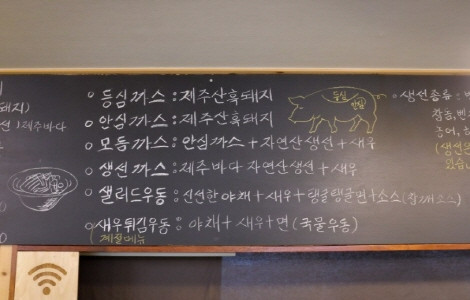 돼지)
제주바다
등심까스 : 제주산흑돼지
안심까스 : 제주산흑돼지
모듬까스 : 안심까스 + 자연산생선 + 새우
생선까스 : 제주바다 자연산생선 + 새우
샐러드우동 : 신선한야채 + 새우 + 탱글탱글면 + 소스(참깨소스)
새우튀김우동 : 야채 + 새우 + 면 (국물우동)
계절메뉴
등심
안심
생선종류 :
(생선은
있습니